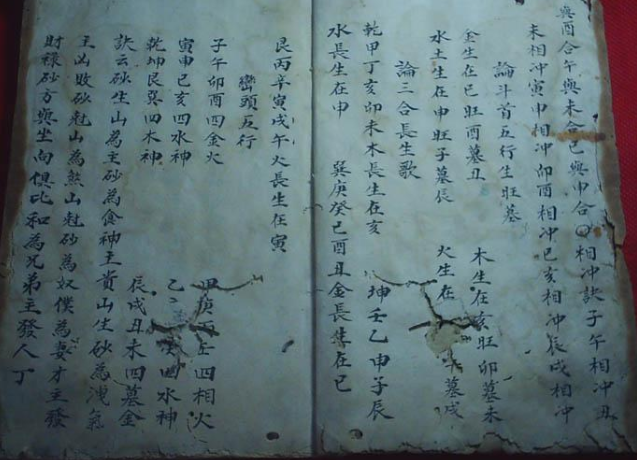 與酉合午與未合巳與申合〇相冲訣子午相冲丑
未相冲寅申相冲卯酉相冲巳亥相冲辰戌相冲
論斗首五行生旺墓
金生在巳旺酉墓丑 木生在亥旺卯墓未
水土生在申旺子墓辰 火生在 墓戌
論三合長生歌
乾甲丁亥卯未木長生在亥 坤壬乙申子辰
水長生在申 巽庚癸巳酉丑金長生在巳
艮丙辛寅戌午火長生在寅
巒頭五行
子午卯酉四金火 甲庚 四相火
寅申巳亥四水神 乙 四水神
乾坤艮巽四木神 辰戌丑未四墓金
訣云砂生山為主砂為食神主貴山生砂為洩氣
主凶敗砂尅山為煞山尅砂為奴僕為妻才主發
財祿砂方與坐向俱比和為兄弟主發人丁